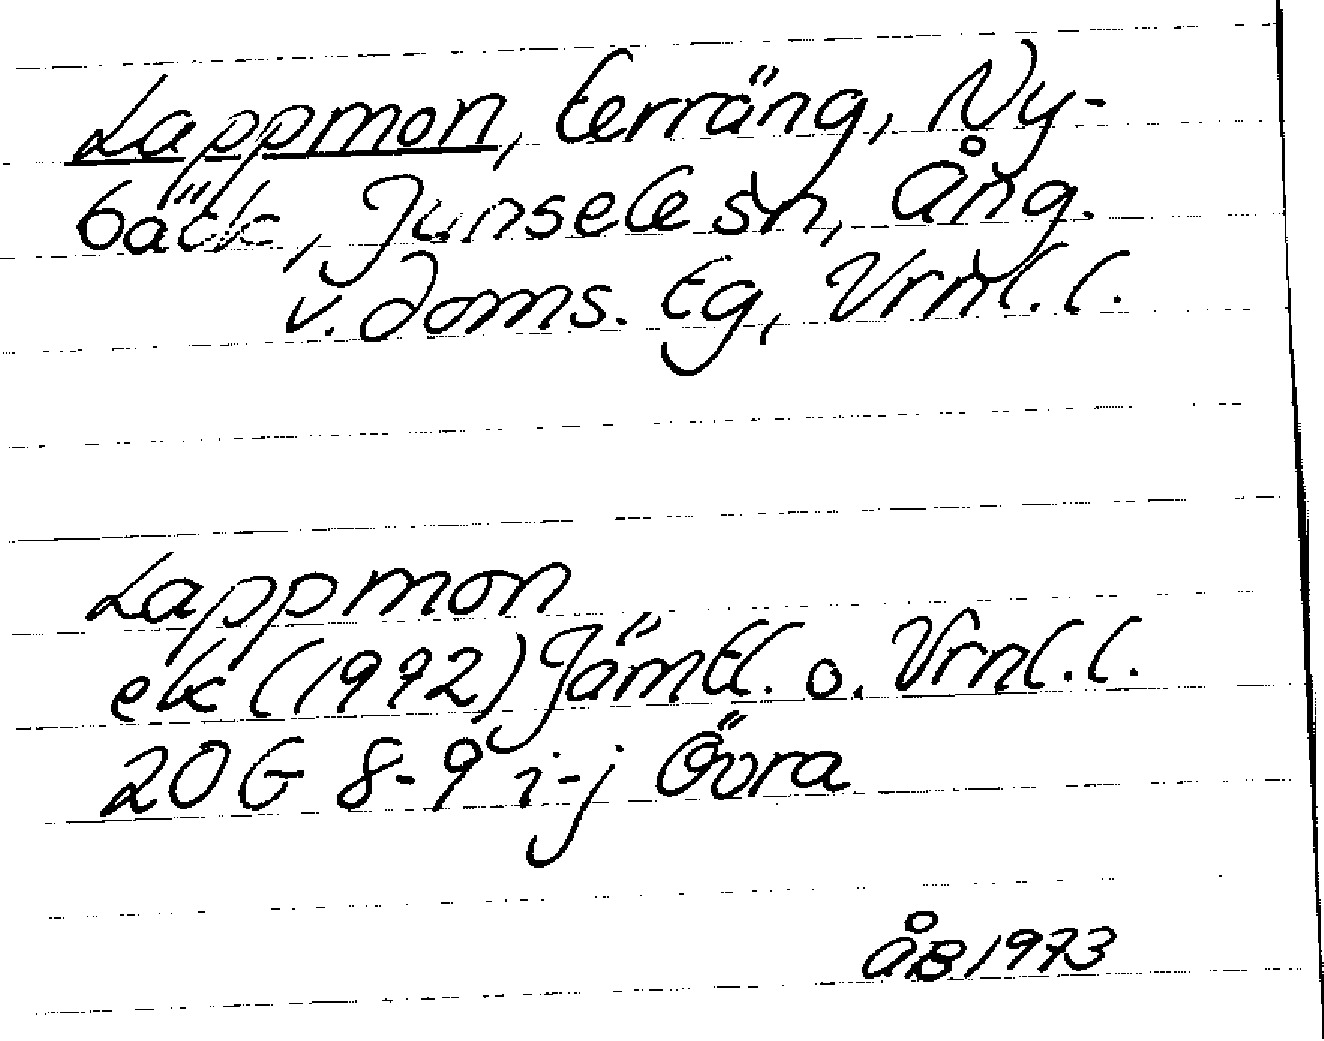 Lappmon, terräng, Ny-
bäck, Junsele sn, Ång.
v. Joms. tg, Vrnl.l.
Lappmon
ek (1992) Jämtl. o. Vrnl.l.
20 G 8-9 i-j Övra
ÅB 1973